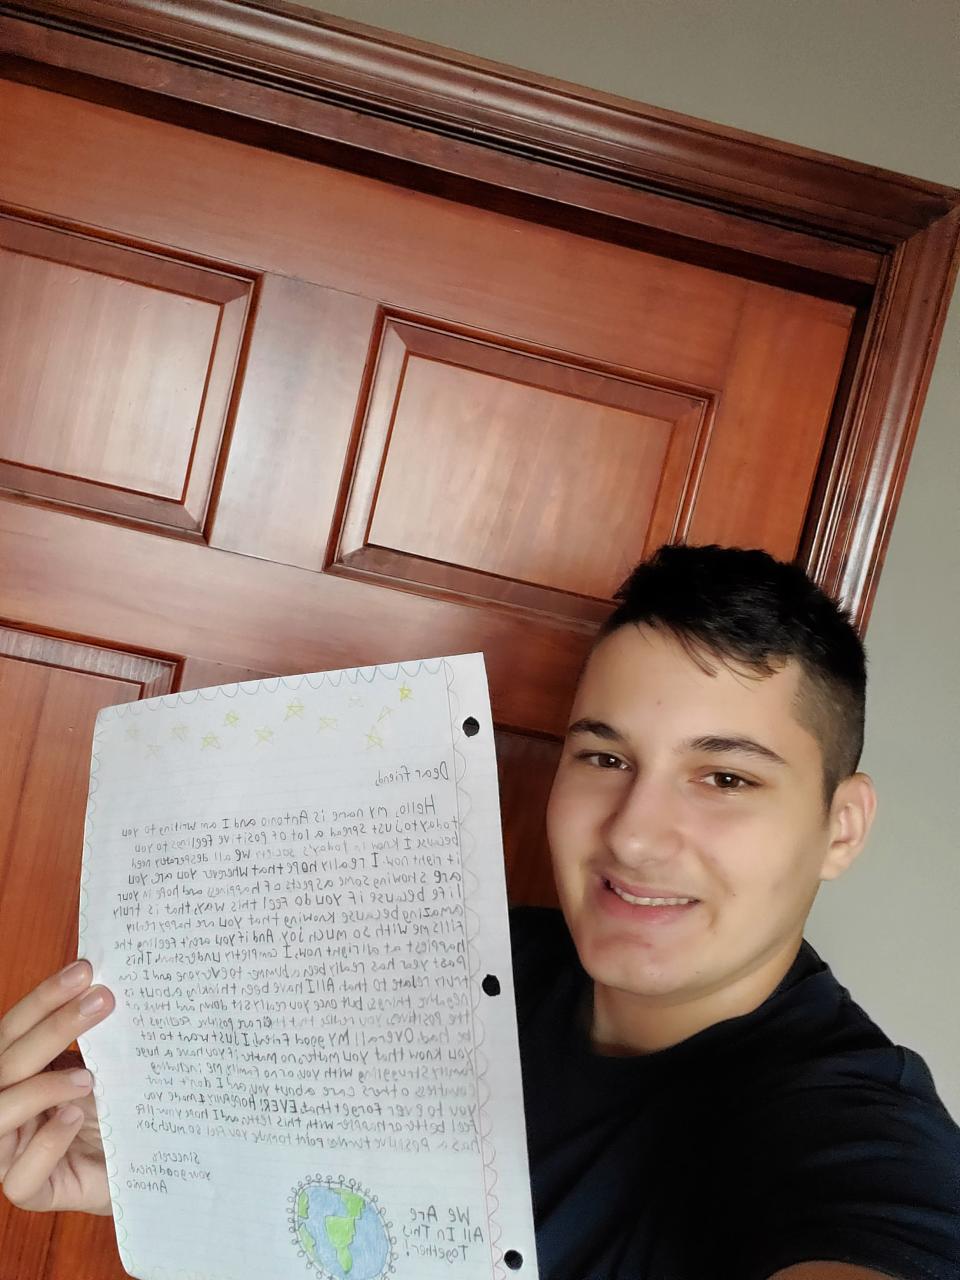 Dear Friend,
Hello, my name is Antonio and I am writing to you
today to just spread a lot of positive feelings to you
because I know in today's society we all desperately need
it right now. I really hope that wherever you are, you
are showing some aspects of happiness and hope in your
life because if you do feel this way, that is truly
amazing because knowing that you are happy really
fills me with so much joy. And if you aren't feeling the
happiest at all right now, I completly understand. This
Past year has really been a bummer to everyone and I can
truly relate to that. All I have been thinking about is
negative things, but once you really sit down and think of
the positives, you realize that there are positive feelings to
be had. Overall my good friend, I just want to let
you know that you matter, no matter if you have a huge
family struggling with you, or no family, me including
countless others care about you and I don't want
you to ever forget that, EVER! Hopefully I made you
feel better or happier with this letter and I hope your life
has a positive turning point to make you feel so much joy.
Sincerely
your good friend,
Antonio
We Are
All In This
Together!